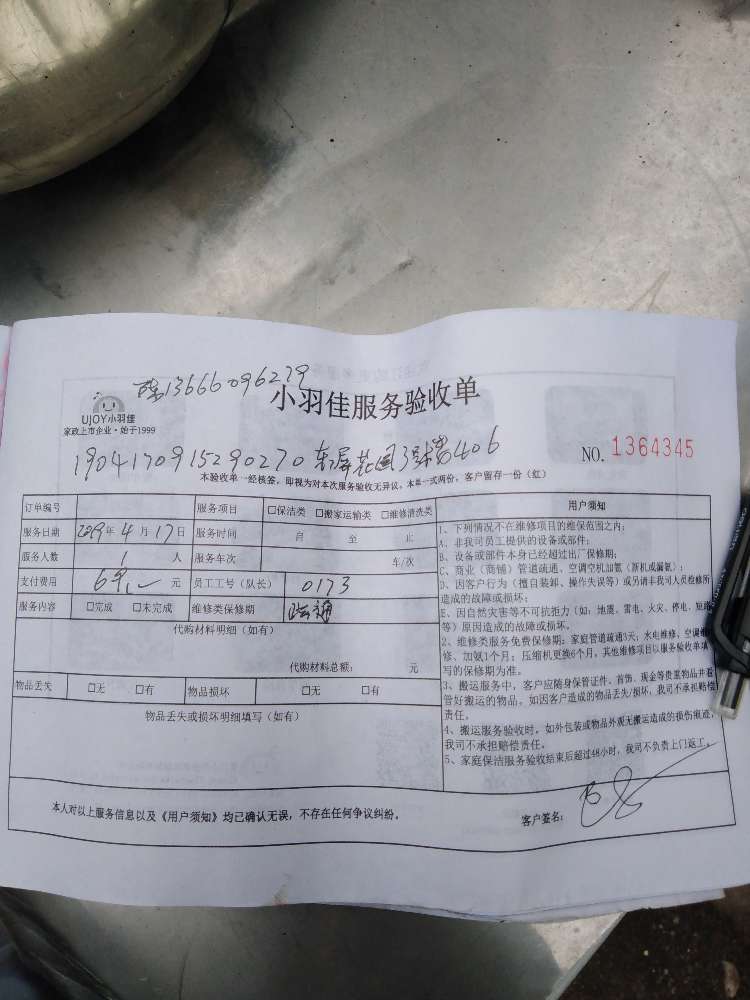 13666096279
小羽佳服务验收单
UJOY小羽佳
家政上市企业·始于1999
NO. 1364345
1904170915290270 东屏花园3 406
本验收单一经核签，即视为对本次服务验收无异议。本单一式两份，客户留存一份（红）
订单编号 服务项目 □保洁类 □搬家运输类 □维修清洗类
服务日期 2019年4月17日 服务时间 自 至 止
服务人数 1 人 服务车次 车/次
支付费用 元 员工工号（队长） 0173
服务内容 □完成 □未完成 维修类保修期 疏通
代购材料明细（如有）
代购材料总额： 元
物品丢失 □无 □有 物品损坏 □无 □有
物品丢失或损坏明细填写（如有）
用户须知
1、下列情况不在维修项目的维保范围之内：
A、非我司员工提供的设备或部件；
B、设备或部件本身已经超过出厂保修期；
C、商业（商铺）管道疏通、空调空机加氨（新机或漏氨）；
D、因客户行为（擅自装卸、操作失误等）或另请非我司人员检修所
造成的故障或损坏；
E、因自然灾害等不可抗力（如：地震、雷电、火灾、停电、短路
等）原因造成的故障或损坏。
2、维修类服务免费保修期：家庭管道疏通3天；水电维修、空调维
修、加氨1个月；压缩机更换6个月，其他维修项目以服务验收单填
写的保修期为准。
3、搬运服务中，客户应随身保管证件、首饰、现金等贵重物品并看
管好搬运的物品，如因客户造成的物品丢失/损坏，我司不承担赔偿
责任。
4、搬运服务验收时，如外包装或物品外观无搬运造成的损伤痕迹，
我司不承担赔偿责任。
5、家庭保洁服务验收结束后超过48小时，我司不负责上门返工。
本人对以上服务信息以及《用户须知》均已确认无误，不存在任何争议纠纷。
客户签名：